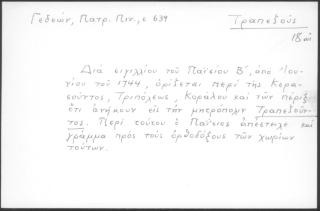 Γεδεών, Πατρ. Πιν., σ 639
Τραπεζούς
18 αι
Διὰ σιγιλλίου τοῦ Παϊσίου Β΄, ἀπὸ Ἰου-
νίου τοῦ 1744, ὁρίζεται περὶ τῆς Κερα-
σοῦντος, Τριπόλεως, Κοράλου καὶ τῶν πέριξ
ὅτι ἀνήκουν εἰς τὴν μητρόπολιν Τραπεζοῦν-
τος. Περὶ τούτου ὁ Παΐσιος ἀπέστειλε καὶ
γράμμα πρὸς τοὺς ὀρθοδόξους τῶν χωρίων
τούτων.